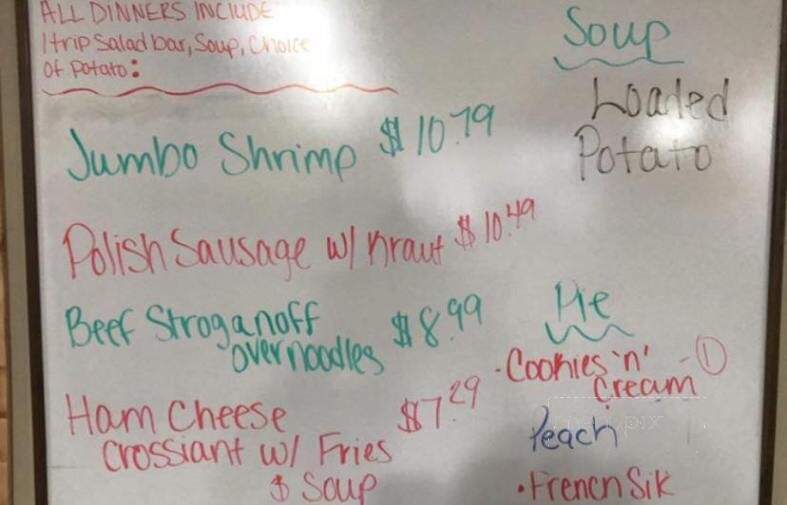 ALL DINNERS INCLUDE
1 trip Salad bar, Soup, Choice
Of Potato:
Jumbo Shrimp $10.79
Polish Sausage w/ Kraut $10.49
Beef Stroganoff
over noodles $8.99
Ham Cheese $7.29
Crossiant w/ Fries
& Soup
Soup
Loaded
Potato
Pie
·Cookies 'n' -①
Cream
Peach
·French Silk